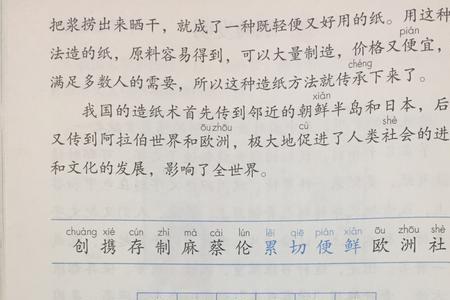 把浆捞出来晒干，就成了一种既轻便又好用的纸。用这种
法造的纸，原料容易得到，可以大量制造，价格又便宜，
pián
满足多数人的需要，所以这种造纸方法就传承下来了。
chéng
我国的造纸术首先传到邻近的朝鲜半岛和日本，后
xiān
又传到阿拉伯世界和欧洲，极大地促进了人类社会的进
ōu zhōu cù shè
和文化的发展，影响了全世界。
chuàng xié cún zhì má cài lún lěi qiē pián xiān ōu zhōu shè
创 携 存 制 麻 蔡 伦 累 切 便 鲜 欧 洲 社